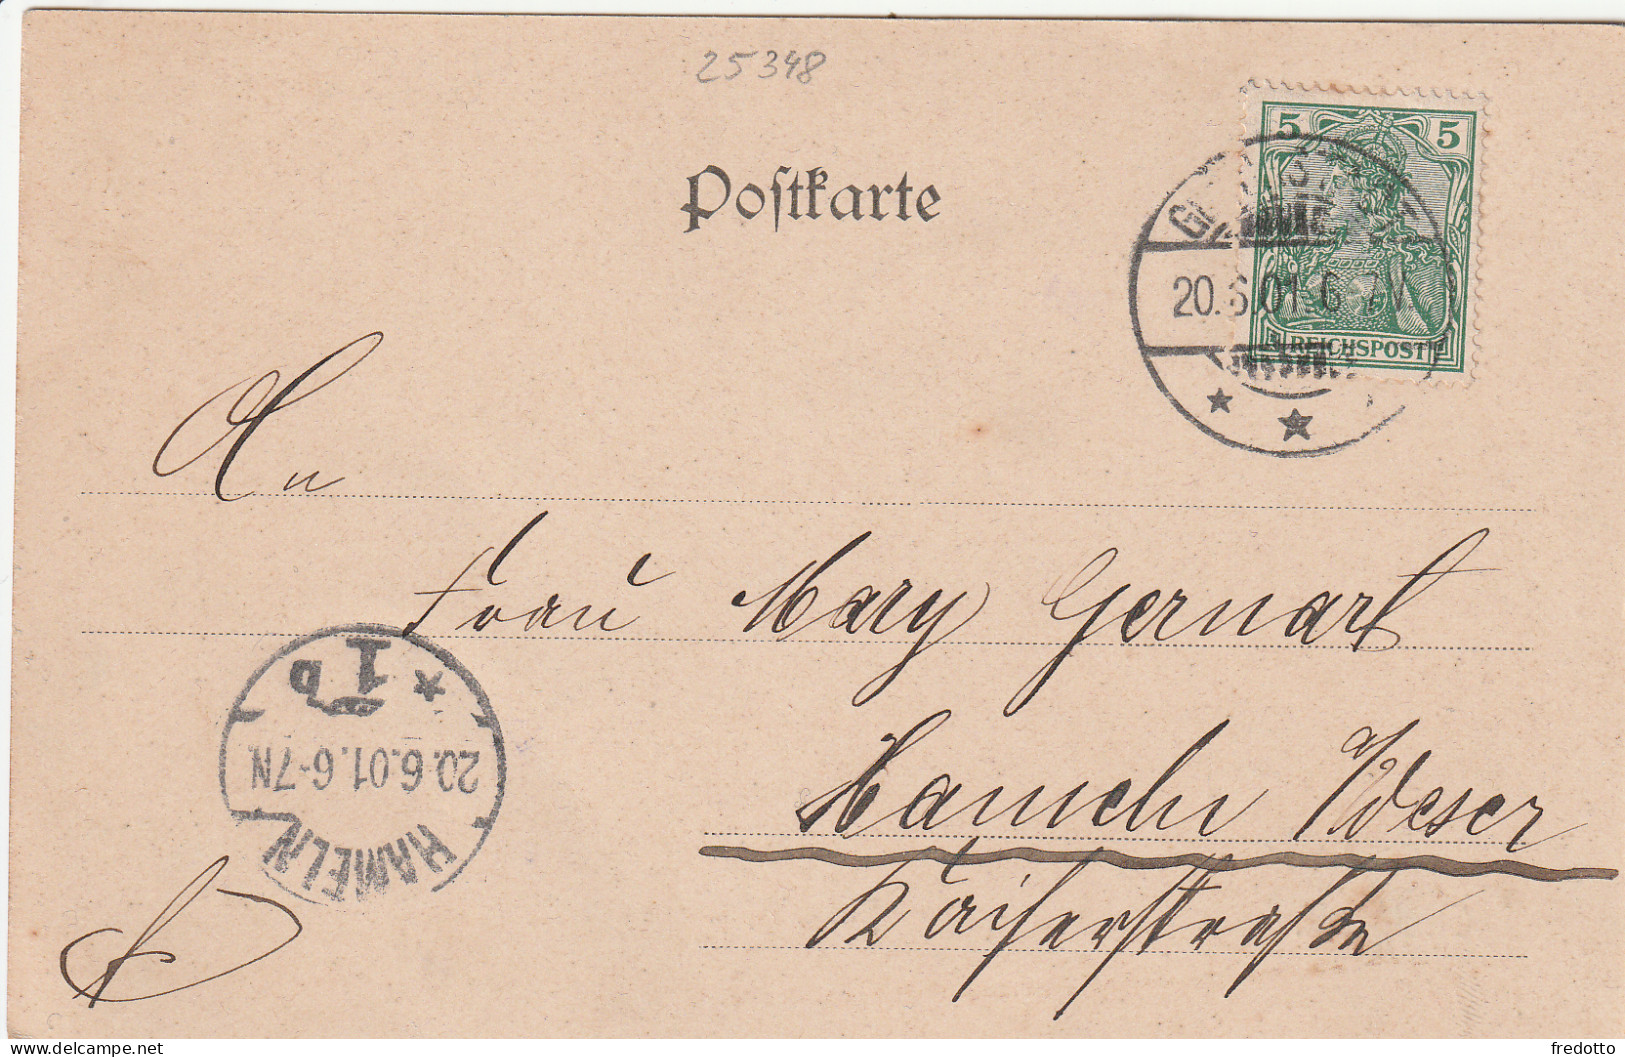 25348
Postkarte
5 5
20.6.01. 6-7N
REICHSPOST
An
Frau Mary Gernart
Hameln a/Weser
Kaiserstraße
1b
20.6.01.6-7N
HAMELN
fredotto